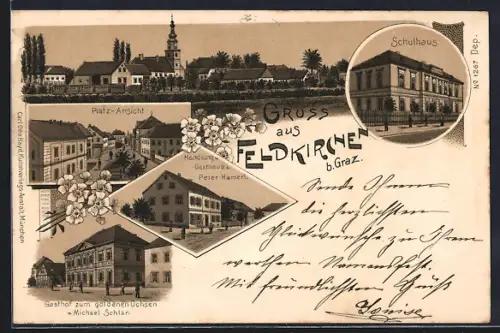 Schulhaus
No 1267. Dep.
Platz-Ansicht
GRUSS
aus
FELDKIRCHEN
b. Graz.
Handlung u.
Gasthaus des
Peter Hamerl
Gasthof zum goldenen Ochsen
v. Michael Schlar
Carl Otto Hayd, Kunstverlags-Anstalt, München
Sende Ihnen
die herzlichsten
Glückwünsche zu Ihrem
werthen Namensfest.
Mit freundlichsten Gruß
Louise